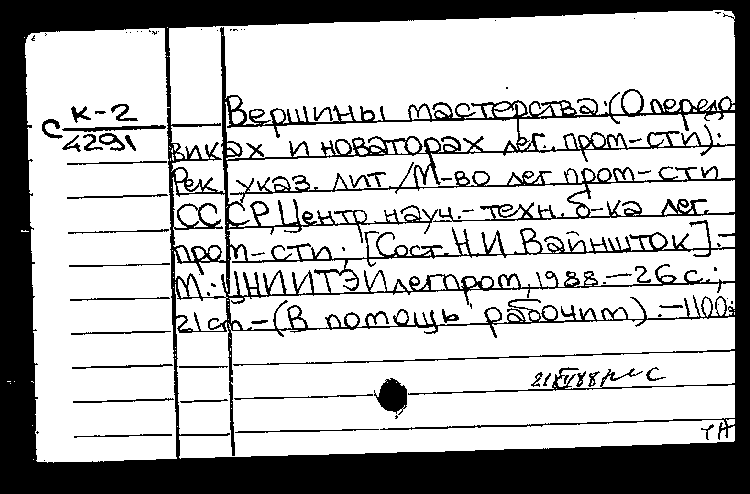 С К-2
4291
Вершины мастерства: (О передо
виках и новаторах лег. пром-сти):
Рек. указ. лит. / М-во лег. пром-сти
СССР, Центр. науч.-техн. б-ка лег.
пром-сти; [Сост. Н.И. Вайншток].–
М.: ЦНИИТЭИлегпром, 1988.–26 с.;
21 см.–(В помощь рабочим).–1100э